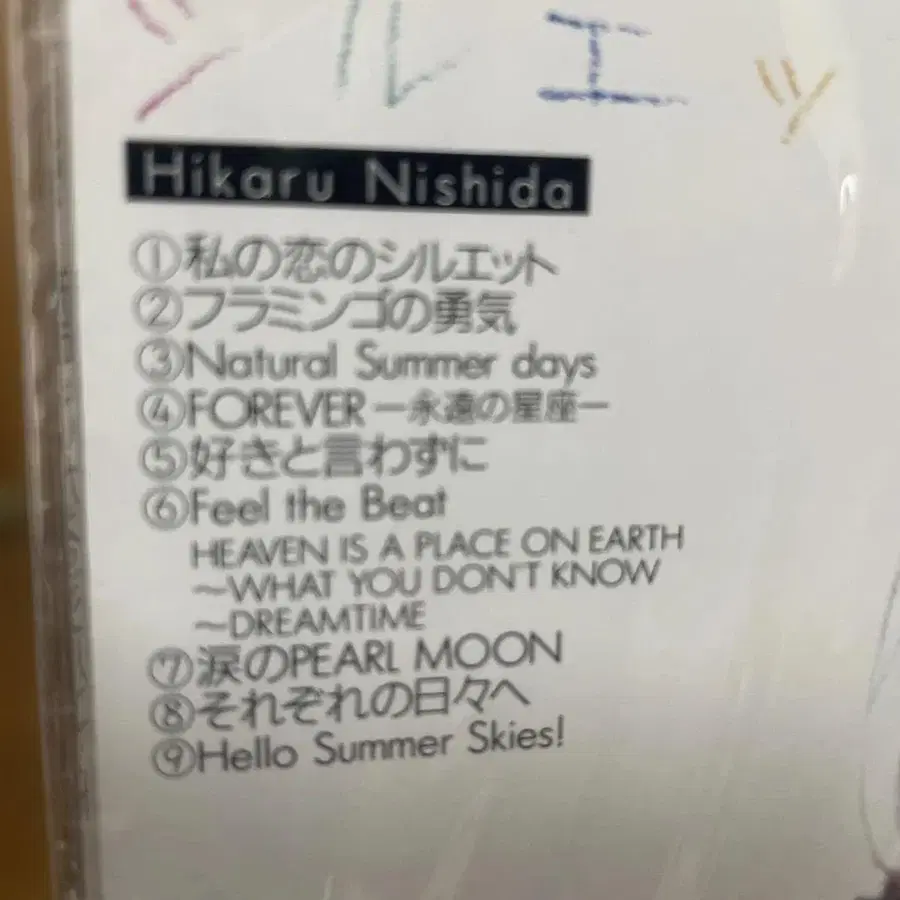 シルエッ
Hikaru Nishida
①私の恋のシルエット
②フラミンゴの勇気
③Natural Summer days
④FOREVER—永遠の星座—
⑤好きと言わずに
⑥Feel the Beat
HEAVEN IS A PLACE ON EARTH
~WHAT YOU DON'T KNOW
~DREAMTIME
⑦涙のPEARL MOON
⑧それぞれの日々へ
⑨Hello Summer Skies!